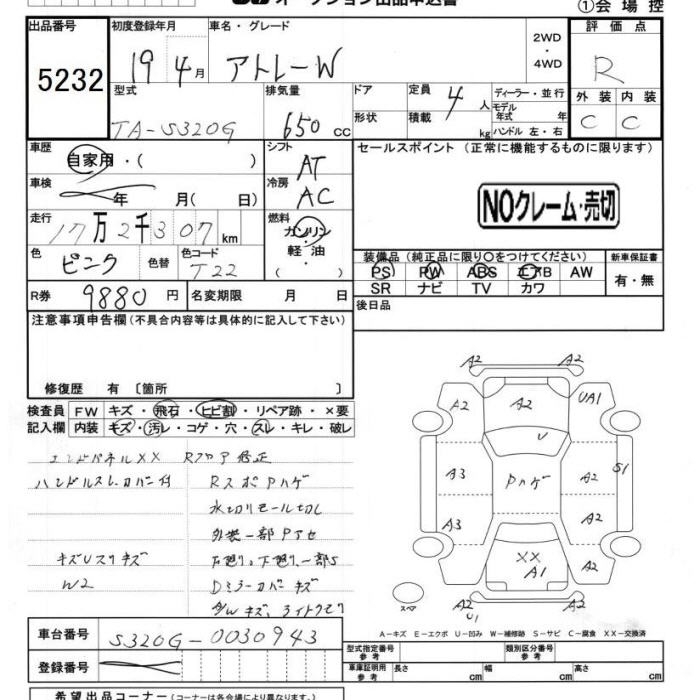 オークション出品申込書
①会場控
出品番号
5232
初度登録年月
19 4月
車名・グレード
アトレーW
2WD
・
4WD
評価点
R
外装 内装
C C
型式
TA-S320G
排気量
650 cc
ドア
形状
定員 4 人
積載 kg
ディーラー・並行
モデル
年式 年
ハンドル 左・右
車歴
自家用・( )
シフト
AT
セールスポイント (正常に機能するものに限ります)
NOクレーム・売切
車検
年 月( 日)
冷房
AC
走行
17万2千307 km
燃料
ガソリン
軽油
( )
色
ピンク
色替
色コード
T22
装備品 (純正品に限り○をつけてください)
PS PW ABS エアB AW
SR ナビ TV カワ
新車保証書
有・無
R券 9880 円
名変期限 月 日
後日品
注意事項申告欄 (不具合内容等は具体的に記入して下さい)
修復歴 有 〔箇所 〕
検査員 FW キズ・飛石・ヒビ割・リペア跡・×要
記入欄 内装 キズ・汚レ・コゲ・穴・スレ・キレ・破レ
エンドパネルXX Rフロア修正
ハンドルスレ・カバー付 RスポPハゲ
水切りモール切し
外装一部Pアセ
キズUスリキズ 下廻り一部S
W2 Dミラーカバーキズ
A2 A2
A2 A2 UA1
U
A3 Pハゲ A2 S1
A3 A2
XX
A1 A2
スペア
A2 U1 A2
A-キズ E-エクボ U-凹み W-補修跡 S-サビ C-腐食 XX-交換済
車台番号 S320G-0030943
登録番号
型式指定番号
参考
類別区分番号
参考
車庫証明用
参考
長さ cm 幅 cm 高さ cm
希望出品コーナー (但しコーナーについては各会場により異なります。)